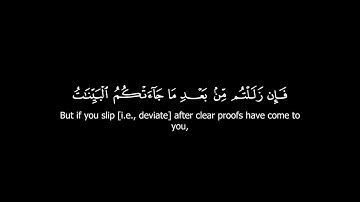 فَإِن زَلَلْتُم مِّنۢ بَعْدِ مَا جَآءَتْكُمُ ٱلْبَيِّنَـٰتُ
But if you slip [i.e., deviate] after clear proofs have come to
you,